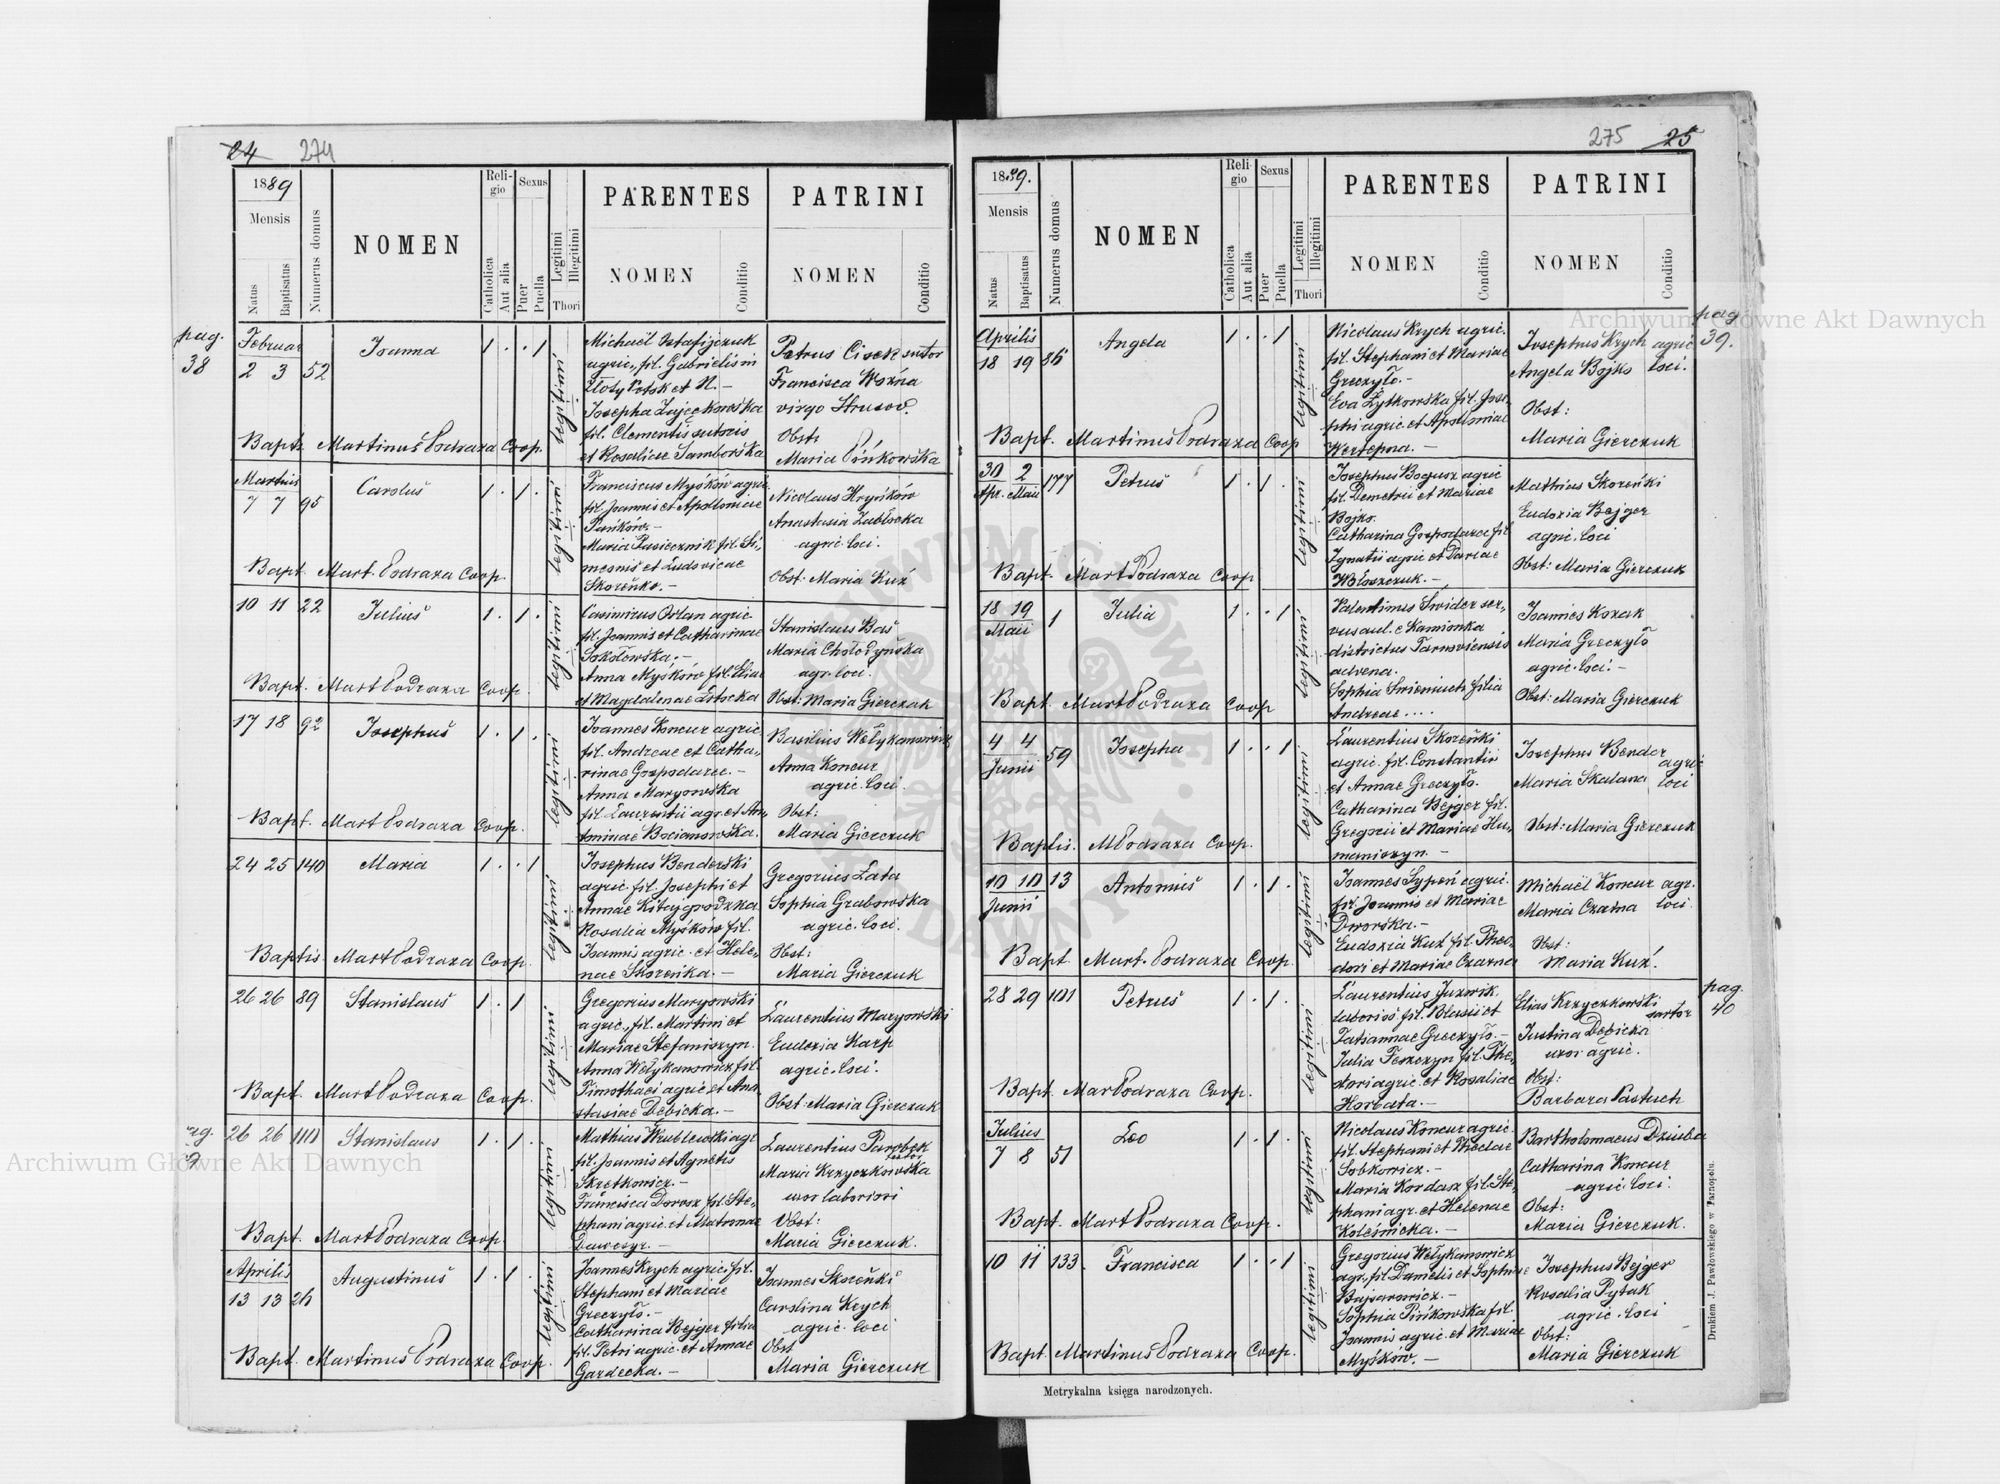 24 274
1889
Mensis
Natus
Baptisatus
Numerus domus
NOMEN
Religio
Catholica
Aut alia
Sexus
Puer
Puella
Legitimi
Illegitimi
Thori
PARENTES
NOMEN
Conditio
PATRINI
NOMEN
Conditio
pag.
38
Februar
2 3 52
Joanna
1 . . 1
legitimi
Michaël
agric., fil. Gabrielis in
Złoty Potok et N. –
Josepha Zajączkowska
fil. Clementis sutoris
et Rosaliae Samborska
Petrus Cisek sutor
Francisca Woźna
virgo Strusov.
Obst:
Maria Pińkowska
Bapt. Martinus Podraza Coop.
Martius
7 7 95
Carolus
1 . 1 .
legitimi
Franciscus Myśków agric.
fil. Joannis et Apolloniae
Pańków. –
Maria Pasiecznik fil. Si-
meonis et Ludovicae
Skoreńka. –
Nicolaus Hryńków
Anastasia Zabłocka
agric. loci.
Obst: Maria Kuź
Bapt. Mart. Podraza Coop.
10 11 22
Julius
1 . 1 .
legitimi
Casimirus Orlan agric.
fil. Joannis et Catharinae
Sokołowska. –
Anna Myśków fil. Eliae
et Magdalenae
Stanislaus Baś
Maria Chołodyńska
agr. loci.
Obst: Maria Gierczuk
Bapt. Mart Podraza Coop.
17 18 92
Josephus
1 . 1 .
legitimi
Joannes Koncur agric.
fil. Andreae et Catha-
rinae Gospodarec. –
Anna Maryowska
fil. Laurentii agr. et An-
toninae Bocianowska.
Basilius Wełykanowicz
Anna Koncur
agric. loci.
Obst:
Maria Gierczuk
Bapt. Mart Podraza Coop.
24 25 140
Maria
1 . . 1
legitimi
Josephus Benderski
agric. fil. Josephi et
Annae Kitajgrodzka
Rosalia Myśków fil.
Joannis agric. et Hele-
nae Skoreńka. –
Gregorius Łata
Sophia Grabowska
agric. loci.
Obst:
Maria Gierczuk
Baptis. Mart Podraza Coop.
26 26 89
Stanislaus
1 . 1
legitimi
Gregorius Maryowski
agric., fil. Martini et
Mariae Stefaniszyn.
Anna Wełykanowicz fil.
Timothaei agric. et Ana-
stasiae Dębicka. –
Laurentius Maryowski
Eudoxia Karp
agric. loci.
Obst: Maria Gierczuk
Bapt. Mart Podraza Coop.
26 26
Stanislaus
1 . 1 .
legitimi
Mathias Wrublewski agr.
fil. Joannis et Agnetis
Skrętkowicz. –
Francisca Dorosz fil. Ste-
phani agric. et Matronae
Laurentius Parobek
Maria Krzyczkowska
uxor laboriosi
Obst:
Maria Gierczuk.
Bapt. Mart Podraza Coop.
Aprilis
13 13 26
Augustinus
1 . 1 .
legitimi
Joannes Krych agric. fil.
Stephani et Mariae
Greczyło. –
Catharina Bejger filia
Petri agric. et Annae
Gardecka. –
Joannes Skoreńki
Carolina Krych
agric. loci
Obst
Maria Gierczuk
Bapt. Martinus Podraza Coop.
275 25
1889.
Mensis
Natus
Baptisatus
Numerus domus
NOMEN
Religio
Catholica
Aut alia
Sexus
Puer
Puella
Legitimi
Illegitimi
Thori
PARENTES
NOMEN
Conditio
PATRINI
NOMEN
Conditio
pag
39.
Aprilis
18 19 86
Angela
1 . . 1
legitimi
Nicolaus Krych agric.
fil. Stephani et Mariae
Greczyło. –
Eva Żytkowska fil. Jose-
phi agric. et Apolloniae
Wertepna. –
Josephus Krych agric
Angela Bojko loci.
Obst:
Maria Gierczuk
Bapt. Martinus Podraza Coop
30 2
Apr. Maii
177
Petrus
1 . 1 .
legitimi
Josephus Bogusz agric
fil. Demetrii et Mariae
Bojko.
Catharina Gospodarec fil
Ignatii agric. et Dariae
Wołoszczuk. –
Mathias Skoreńki
Eudoxia Bejger
agric. loci
Obst: Maria Gierczuk
Bapt. Mart Podraza Coop
18 19
Maii
1
Julia
1 . . 1
legitimi
Valentinus Swider ser-
vus aul. e Kamionka
districtus Tarnoviensis
advena.
Sophia filia
Andreae ....
Joannes Kozak
Maria Greczyło
agric. loci. –
Obst: Maria Gierczuk
Bapt. Mart Podraza Coop
4 4
Junii
59
Josepha
1 . . 1
legitimi
Laurentius Skoreńki
agric. fil. Constantin
et Annae Greczyło.
Catharina Bejger fil.
Gregorii et Mariae Hu-
meniszyn. –
Josephus Bender agric
Maria Skalana loci
Obst: Maria Gierczuk
Baptis. M Podraza Coop.
10 10
Junii
13
Antonius
1 . 1 .
legitimi
Joannes Sypeń agric.
fil. Joannis et Mariae
Dworska. –
Eudoxia Kuź fil. Theo-
dori et Mariae Czarna
Michaël Koncur agr.
Maria Czarna loci
Obst:
Maria Kuź.
Bapt. Mart. Podraza Coop.
pag.
40
28 29 101
Petrus
1 . 1 .
legitimi
Laurentius Juzwik
laborios. fil. Blasii et
Tatiannae Greczyło. –
Julia Teszczyn fil. The-
dori agric. et Rosaliae
Horbata. –
Elias Krzyczkowski
sartor
Justina Dębicka
uxor agric.
Obst:
Barbara Pastuch
Bapt. Mart Podraza Coop.
Julius
7 8 51
Leo
1 . 1 .
legitimi
Nicolaus Koncur agric.
fil. Stephani et Theclae
Sobkowicz. –
Maria Kordasz fil. Ste-
phani agr. et Helenae
Koleśnicka. –
Bartholomaeus Dziuba
Catharina Koncur
agric. loci.
Obst:
Maria Gierczuk.
Bapt. Mart Podraza Coop.
10 11 133.
Francisca
1 . . 1
legitimi
Gregorius Wełykanowicz
agr., fil. Danielis et Sophiae
Bajsarowicz. –
Sophia Pińkowska fil.
Joannis agric. et Mariae
Myśków. –
Josephus Bejger
Rosalia Pytak
agric. loci
Obst:
Maria Gierczuk
Bapt. Martinus Podraza Coop.
Metrykalna księga narodzonych.
Drukiem J. Pawłowskiego w Tarnopolu.
Archiwum Główne Akt Dawnych
Archiwum Główne Akt Dawnych
ARCHIWUM GŁÓWNE AKT DAWNYCH